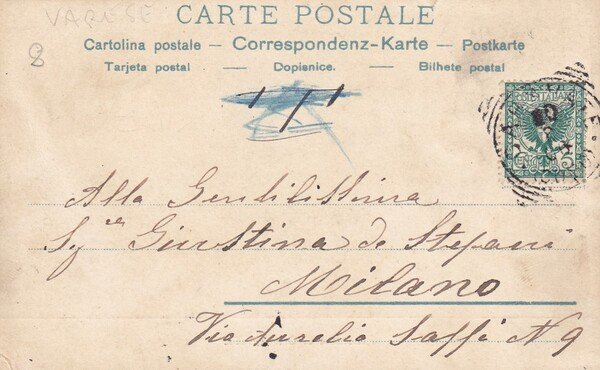 VARESE
CARTE POSTALE
8
Cartolina postale — Correspondenz-Karte — Postkarte
Tarjeta postal — Dopisnice. — Bilhete postal
POSTE ITALIANE
5
Alla Gentilissima
Sg.na Giustina de Stefani
Milano
Via Aurelio Saffi N 9